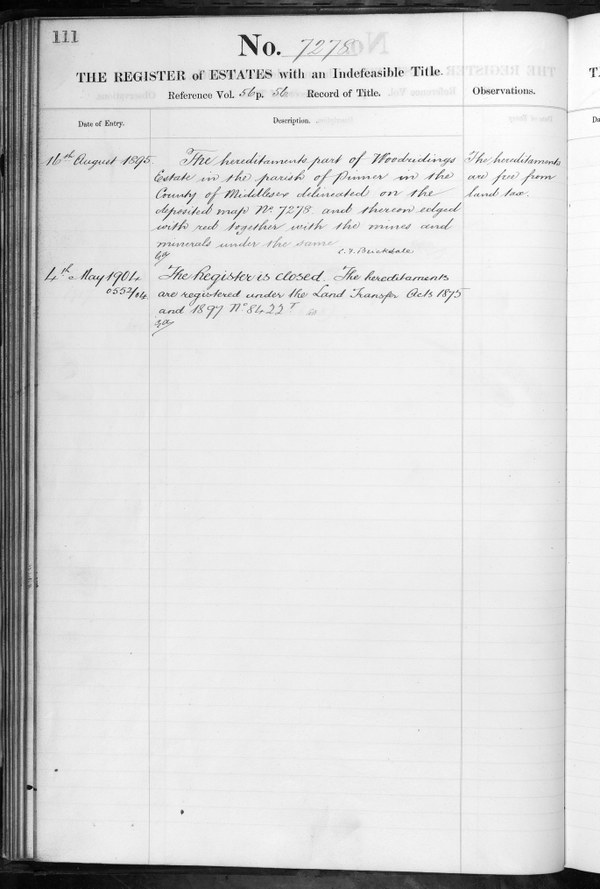 111
No. 7278
THE REGISTER of ESTATES with an Indefeasible Title.
Reference Vol. 56 p. 56 Record of Title.
Observations.
Date of Entry.
Description.
16th August 1895
The hereditaments part of Woodridings
Estate in the parish of Pinner in the
County of Middlesex delineated on the
deposited map No. 7278 and thereon edged
with red together with the mines and
minerals under the same
C. F. Brickdale
The hereditaments
are free from
land tax.
4th May 1904
0552/04
The Register is closed. The hereditaments
are registered under the Land Transfer Acts 1875
and 1897 No 8422